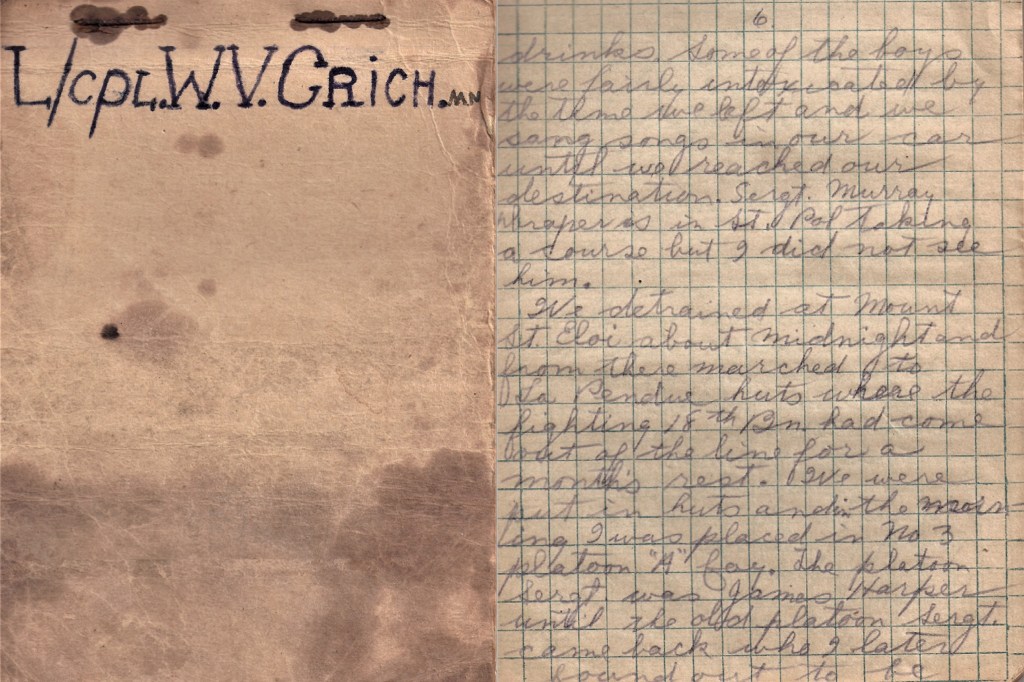 L/cpl. W. V. CRICH. MM
6.
drinks Some of the boys
were fairly intoxicated by
the time we left and we
sang songs in our car
until we reached our
destination. Sergt. Murray
Draper is in St. Pol taking
a course but I did not see
him.
We detrained at Mount
St. Eloi about midnight and
from there marched to
La Pendue huts where the
fighting 18th Bn had come
out of the line for a
month's rest. We were
put in huts and in the morn-
ing I was placed in No 3
platoon "A" Coy. The platoon
Sergt was James Harper
until the old platoon Sergt.
came back who I later
found out to be